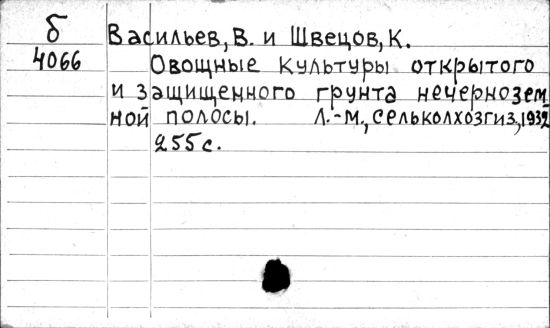 б
4066
Васильев, В. и Швецов, К.
Овощные культуры открытого
и защищенного грунта нечернозем-
ной полосы. Л.-М., Сельколхозгиз, 1932
255 с.